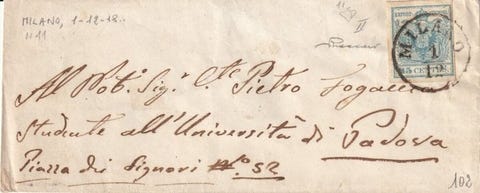 MILANO, 1-12-18..
N 11
II
MILANO
1
12
45 CENT
Al Nob. Sig. Cte Pietro Fogaccia
Studente all'Università di Padova
Piazza dei Signori No. 52
102